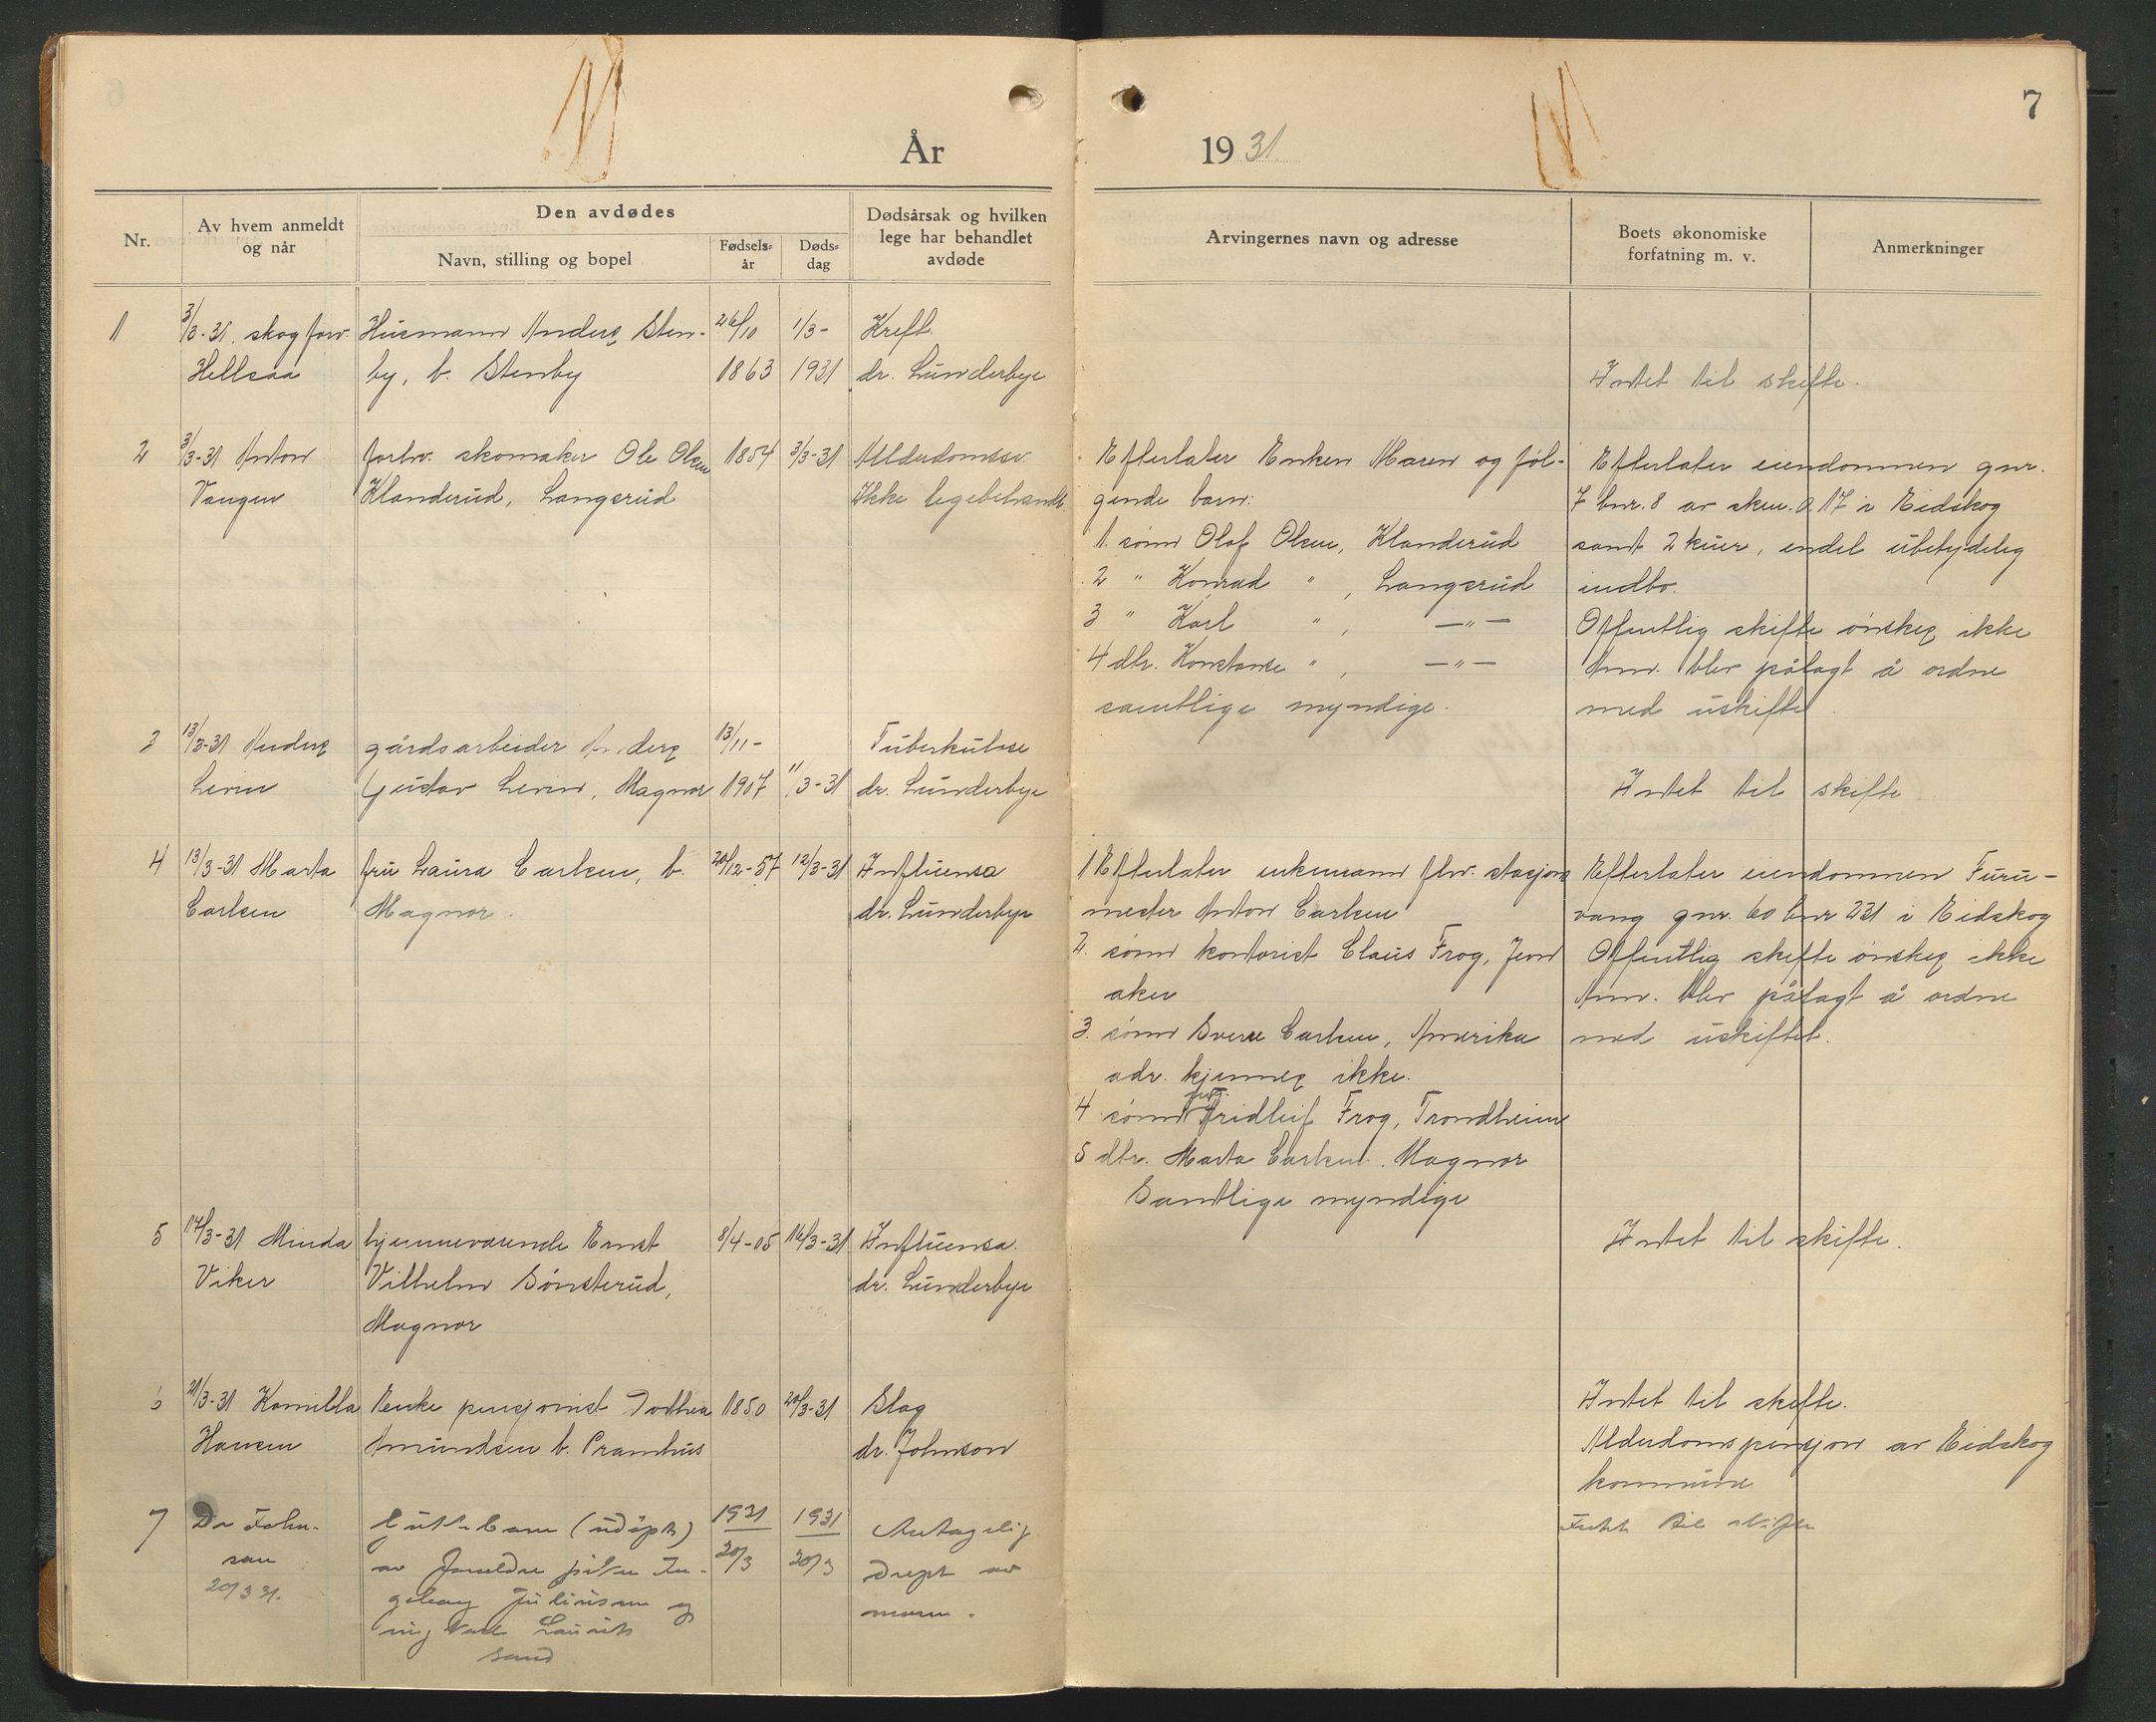 7
År 1931
Nr.
Av hvem anmeldt
og når
Den avdødes
Navn, stilling og bopel
Fødsels-
år
Døds-
dag
Dødsårsak og hvilken
lege har behandlet
avdøde
Arvingernes navn og adresse
Boets økonomiske
forfatning m. v.
Anmerkninger
1 3/3-31. skogforv. Husmann Anders Sten- 26/10 1/3- Kreft.
Hellsaa by, b. Stenby 1863 1931 dr. Lunderbye Intet til skifte.
2 3/3-31 Anton forhv. skomaker Ole Olsen 1854 3/3-31 Alderdomssv. Efterlater Enken Maren og føl- Efterlater eiendommen gnr.
Vangen Klanderud, Langsrud Ikke legebehandl. gende barn: 7 bnr. 8 av skm. 0.17 i Eidskog
1. sønn Olaf Olsen, Klanderud samt 2 kuer, endel ubetydelig
2 " Konrad " , Langsrud indbo.
3 " Karl " , —"— Offentlig skifte ønskes ikke
4 dtr. Konstanse " , —"— Anm. blev pålagt å ordne
samtlige myndige. med uskifte.
3 13/3-31 Anders gårdsarbeider Anders 13/11- Tuberkulose
Levin Gustav Levin, Magnor 1907 11/3-31 dr. Lunderbye Intet til skifte
4 13/3-31 Marta fru Laura Carlsen, b. 20/12-57 12/3-31 Influensa 1 Efterlater enkemann fhv. stasjons Efterlater eiendommen Furu-
Carlsen Magnor. dr. Lunderbye mester Anton Carlsen vang gnr. 60 bnr 231 i Eidskog
2. sønn kontorist Claus Frog, Jevn Offentlig skifte ønskes ikke
aker Anm. blev pålagt å ordne
3. sønn Sverre Carlsen, Amerika med uskiftet.
adr. kjennes ikke.
4 sønn Fridleif Frog, Trondheim
5 dtr. Marta Carlsen. Magnor
Samtlige myndige
5 17/3-31 Minda hjemmeværende Ernst 8/4-05 16/3-31 Influensa. Intet til skifte.
Viker Vilhelm Sønsterud, dr. Lunderbye
Magnor
6 21/3-31 Kamilla Enke pensjonist Dorthea 1850 20/3-31 Slag Intet til skifte.
Hansen Amundsen b. Pramhus dr. Johnson Alderdomspensjon av Eidskog
kommune
7 Dr John- Guttebarn (udøpt) 1931 1931 Antagelig Intet til skifte
son av foreldre pike In- 20/3 20/3 drept av
20/3 31. geborg Juliussen og moren.
ungkar Laurits
Sand